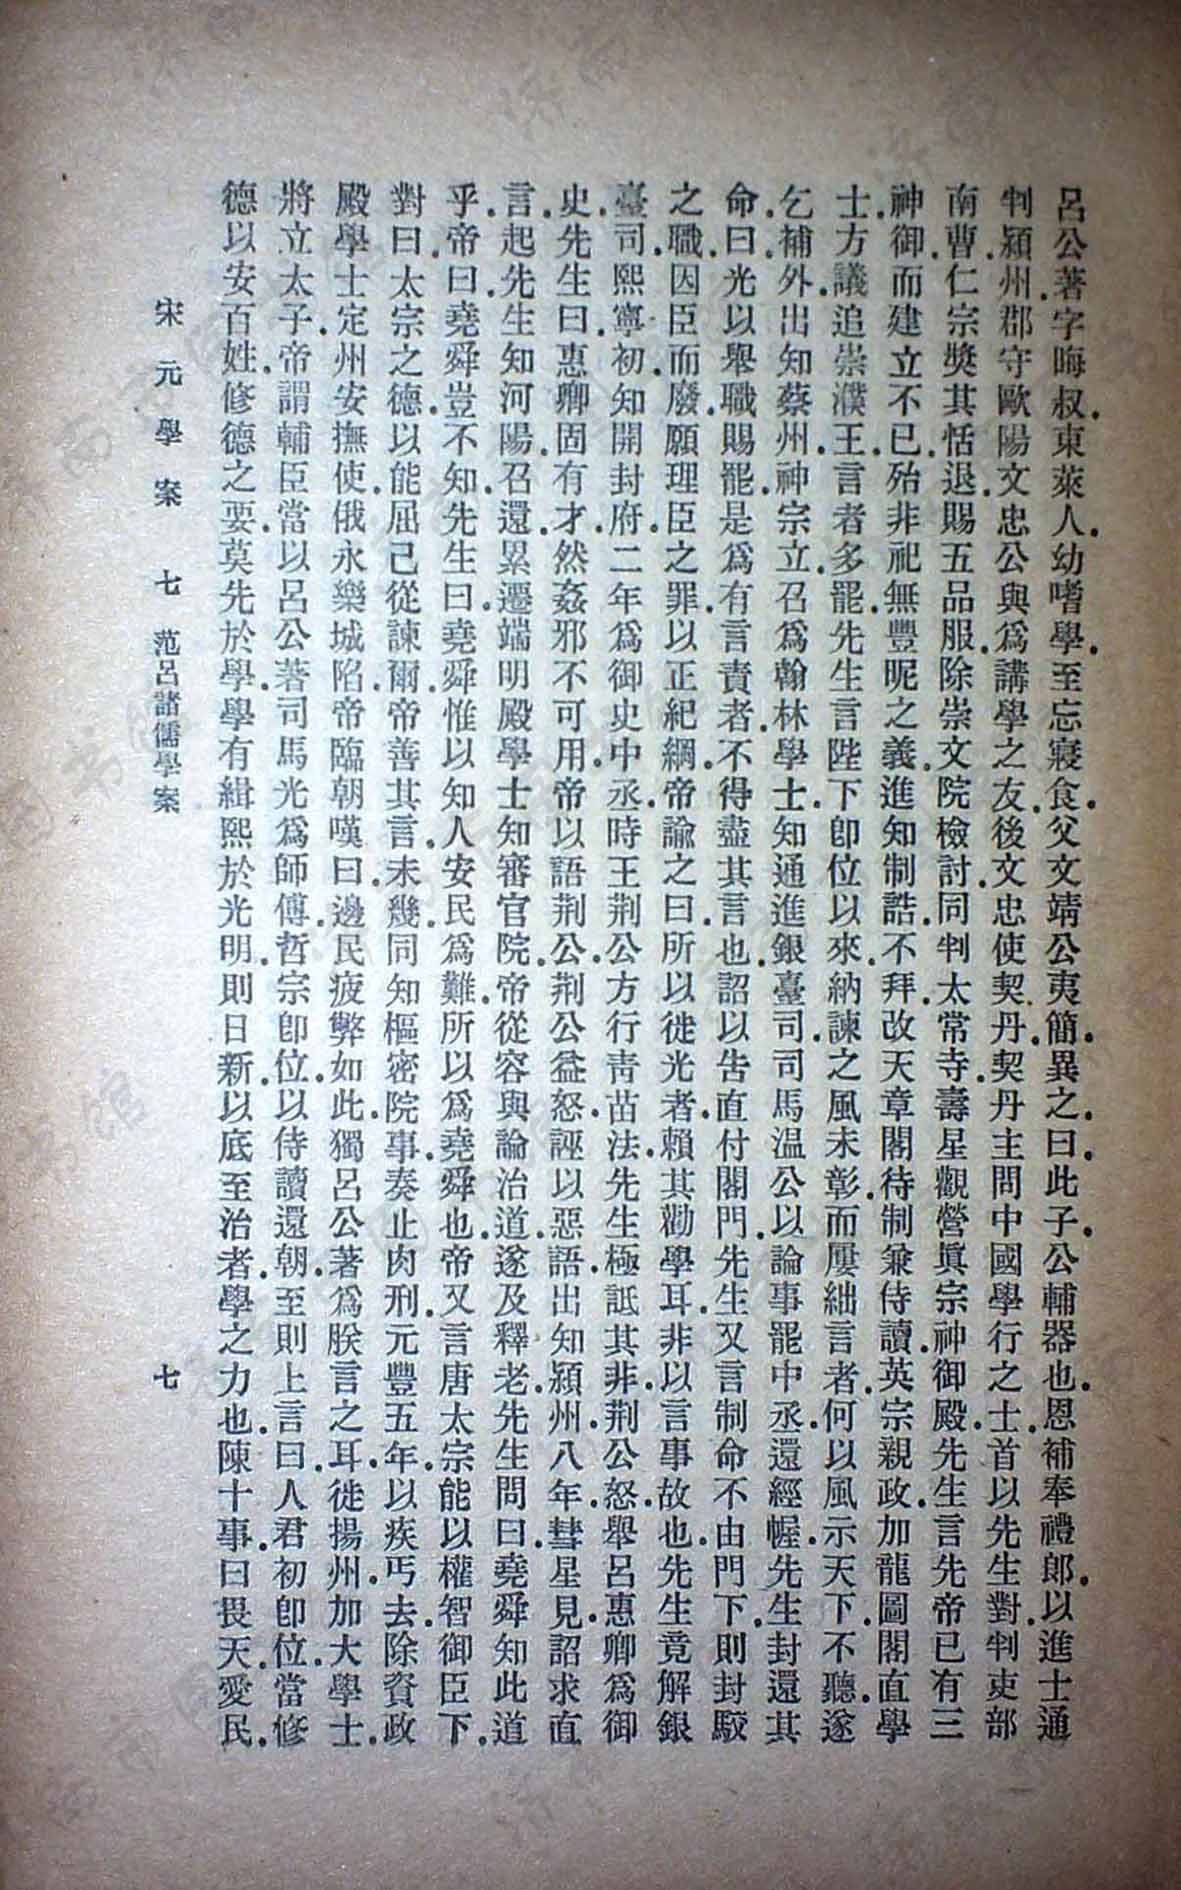 呂公著字晦叔.東萊人.幼嗜學.至忘寢食.父文靖公夷簡.異之.曰此子.公輔器也.恩補奉禮郎.以進士通
判潁州.郡守歐陽文忠公與爲講學之友.後文忠使契丹.契丹主問中國學行之士.首以先生對.判吏部
南曹.仁宗獎其恬退.賜五品服.除崇文院檢討.同判太常寺.壽星觀營眞宗神御殿.先生言先帝已有三
神御.而建立不已.殆非祀無豐昵之義.進知制誥.不拜.改天章閣待制兼侍讀.英宗親政.加龍圖閣直學
士.方議追崇濮王.言者多罷.先生言陛下卽位以來.納諫之風未彰.而屢絀言者.何以風示天下.不聽.遂
乞補外.出知蔡州.神宗立.召爲翰林學士.知通進銀臺司.司馬溫公以論事罷中丞.還經幄.先生封還其
命.曰光以舉職賜罷.是爲有言責者.不得盡其言也.詔以告直付閣門.先生又言制命不由門下.則封駁
之職.因臣而廢.願理臣之罪.以正紀綱.帝諭之曰.所以徙光者.賴其勸學耳.非以言事故也.先生竟解銀
臺司.熙寧初.知開封府.二年爲御史中丞.時王荆公方行靑苗法.先生極詆其非.荆公怒.舉呂惠卿爲御
史.先生曰.惠卿固有才.然姦邪不可用.帝以語荆公.荆公益怒.誣以惡語.出知潁州.八年.彗星見.詔求直
言.起先生知河陽.召還.累遷端明殿學士知審官院.帝從容與論治道.遂及釋老.先生問曰.堯舜知此道
乎.帝曰.堯舜豈不知.先生曰.堯舜惟以知人安民爲難.所以爲堯舜也.帝又言唐太宗能以權智御臣下.
對曰.太宗之德.以能屈己從諫爾.帝善其言.未幾.同知樞密院事.奏止肉刑.元豐五年.以疾丐去.除資政
殿學士定州安撫使.俄永樂城陷.帝臨朝嘆曰.邊民疲弊如此.獨呂公著爲朕言之耳.徙揚州.加大學士.
將立太子.帝謂輔臣.當以呂公著司馬光爲師傅.哲宗卽位.以侍讀還朝.至則上言曰.人君初卽位.當修
德以安百姓.修德之要.莫先於學.學有緝熙於光明.則日新.以底至治者.學之力也.陳十事.曰畏天.愛民.
宋元學案 七 范呂諸儒學案 七